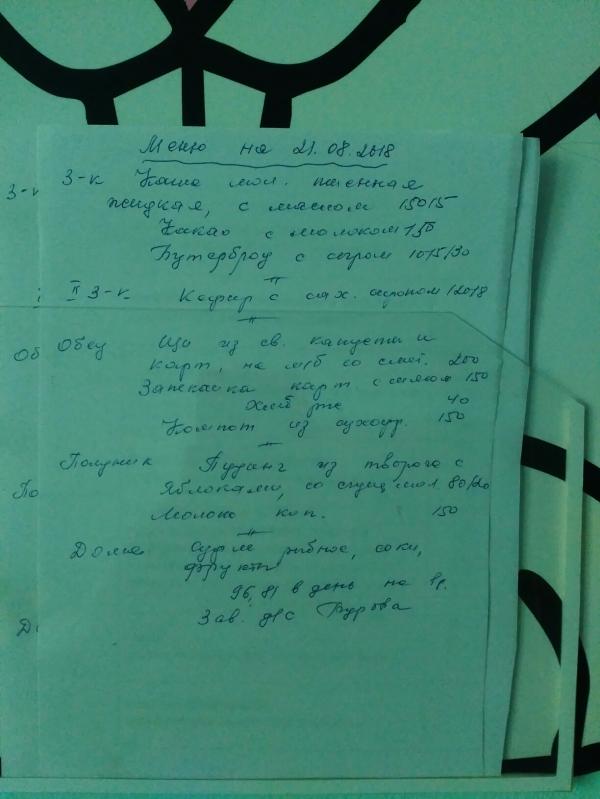 Меню на 21.08.2018
З-к З-к Каша мол. пшенная
жидкая, с маслом 150/5
Какао с молоком 150
Бутерброд с сыром 10/5/30
II З-к. Кефир с сах. 120/8
Об Обед Щи из св. капусты и
карт, на м/б со смет. 200
Запеканка карт. с мясом 150
Хлеб рж 40
Компот из сухофр. 150
По Полдник Пудинг из творога с
яблоками, со сгущ мол 80/20
Молоко кип. 150
До Дома Суфле рыбное, соки,
фрукты
96,81 в день на 1р.
Зав. д/с Бурова